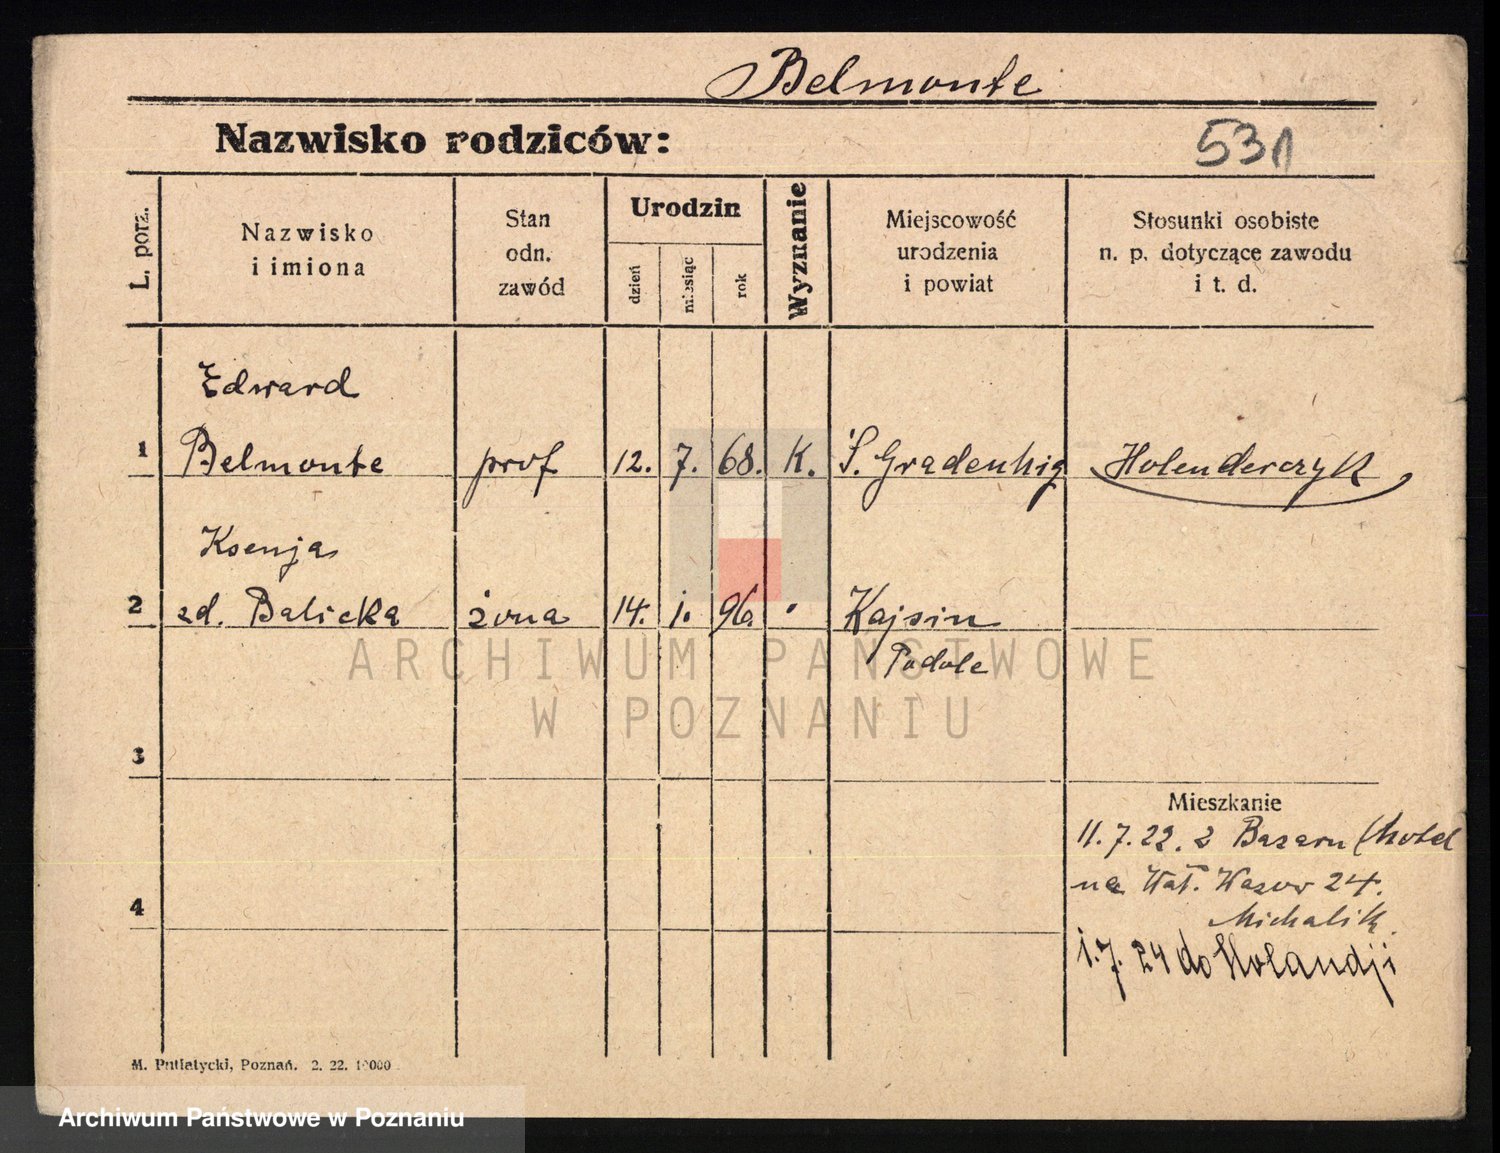 Belmonte
Nazwisko rodziców:
531
L. porz.
Nazwisko
i imiona
Stan
odn.
zawód
Urodzin
dzień
miesiąc
rok
Wyznanie
Miejscowość
urodzenia
i powiat
Stosunki osobiste
n. p. dotyczące zawodu
i t. d.
Edward
1 Belmonte prof 12. 7. 68. K. S. Gradenhig Holenderczyk
Ksenja
2 zd. Balicka żona 14. 1. 96. Kajsin
Podole
ARCHIWUM PAŃSTWOWE
W POZNANIU
3
Mieszkanie
11.7.22. z Bazaru (hotel
4
na Wał. Wazów 24.
Michalik.
1.7.24 do Holandji
M. Putiatycki, Poznań. 2. 22. 10000
Archiwum Państwowe w Poznaniu